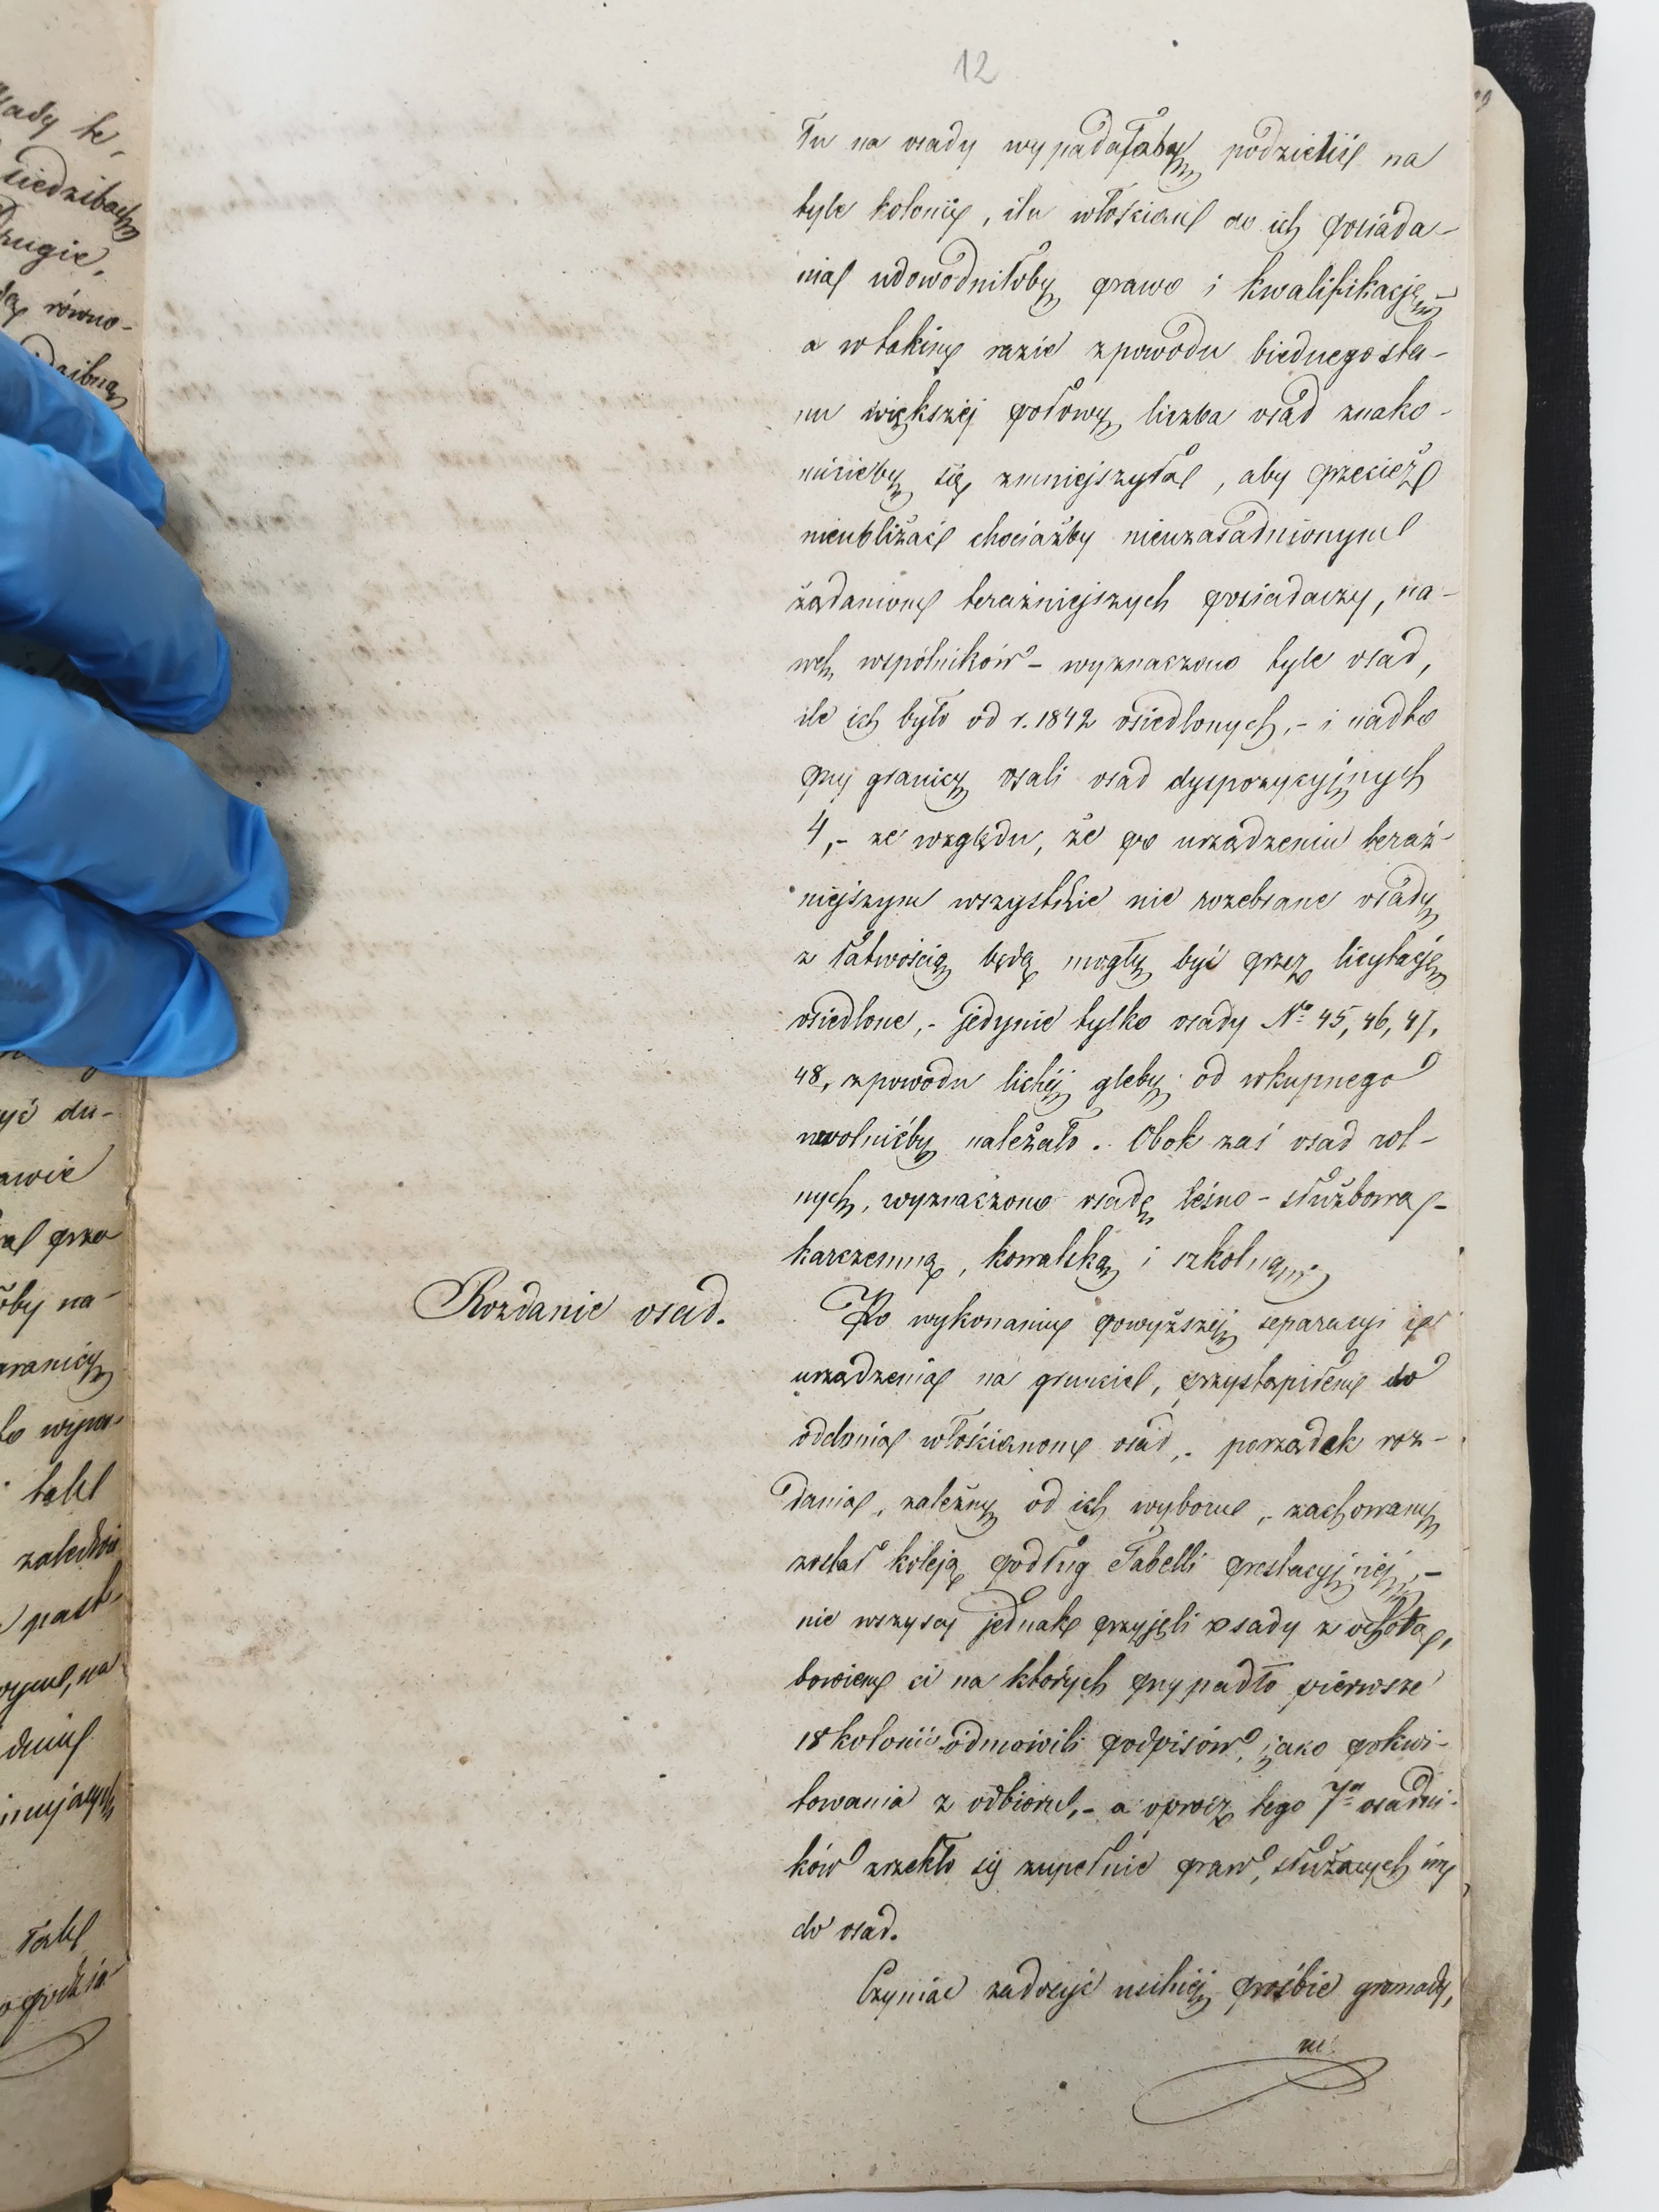 12
Tu na osady wypadałaby podzielić na
tyle kolonii, ilu włościan do ich posiada-
nia udowodniłoby prawo i kwalifikacje,
a w takim razie z powodu biednego sta-
nu większej połowy liczba osad znako-
micieby się zmniejszyła, aby przecież
nieubliżać chociażby nieuzasadnionym
żądaniom teraźniejszych posiadaczy, na-
wet wspólników – wyznaczono tyle osad,
ile ich było od r. 1842 osiedlonych, – i nadto
przy granicy osad dyspozycyjnych
4, – ze względu, że po urządzeniu teraź-
niejszym wszystkie nie rozebrane osady
z łatwością będą mogły być przez licytację
osiedlone, – jedynie tylko osady No 45, 46, 47,
48, z powodu lichej gleby od wkupnego
uwolnićby należało. Obok zaś osad rol-
nych, wyznaczono osadę leśno-służbową –
karczemną, kowalską i szkolną.
Rozdanie osad.
Po wykonaniu powyższej separacyi i
urządzenia na gruncie, przystąpiłem do
oddania włościanom osad, porządek roz-
dania, zależny od ich wyboru, – zachowany
został koleją podług Tabelli prestacyjnej, –
nie wszyscy jednak przyjęli osady z ochotą,
bowiem ci na których przypadło pierwsze
18 kolonii odmówili podpisów, jako pokwi-
towania z odbioru, – a oprócz tego 7m osadni-
ków zrzekło się zupełnie praw, służących im
do osad.
Czyniąc zadosyć usilnej prośbie gromady,
sady te,
siedzibach
drugie,
równo-
yć du-
awie
przo
oby na-
granicy
to wypa-
takt
zaledwie
past-
na